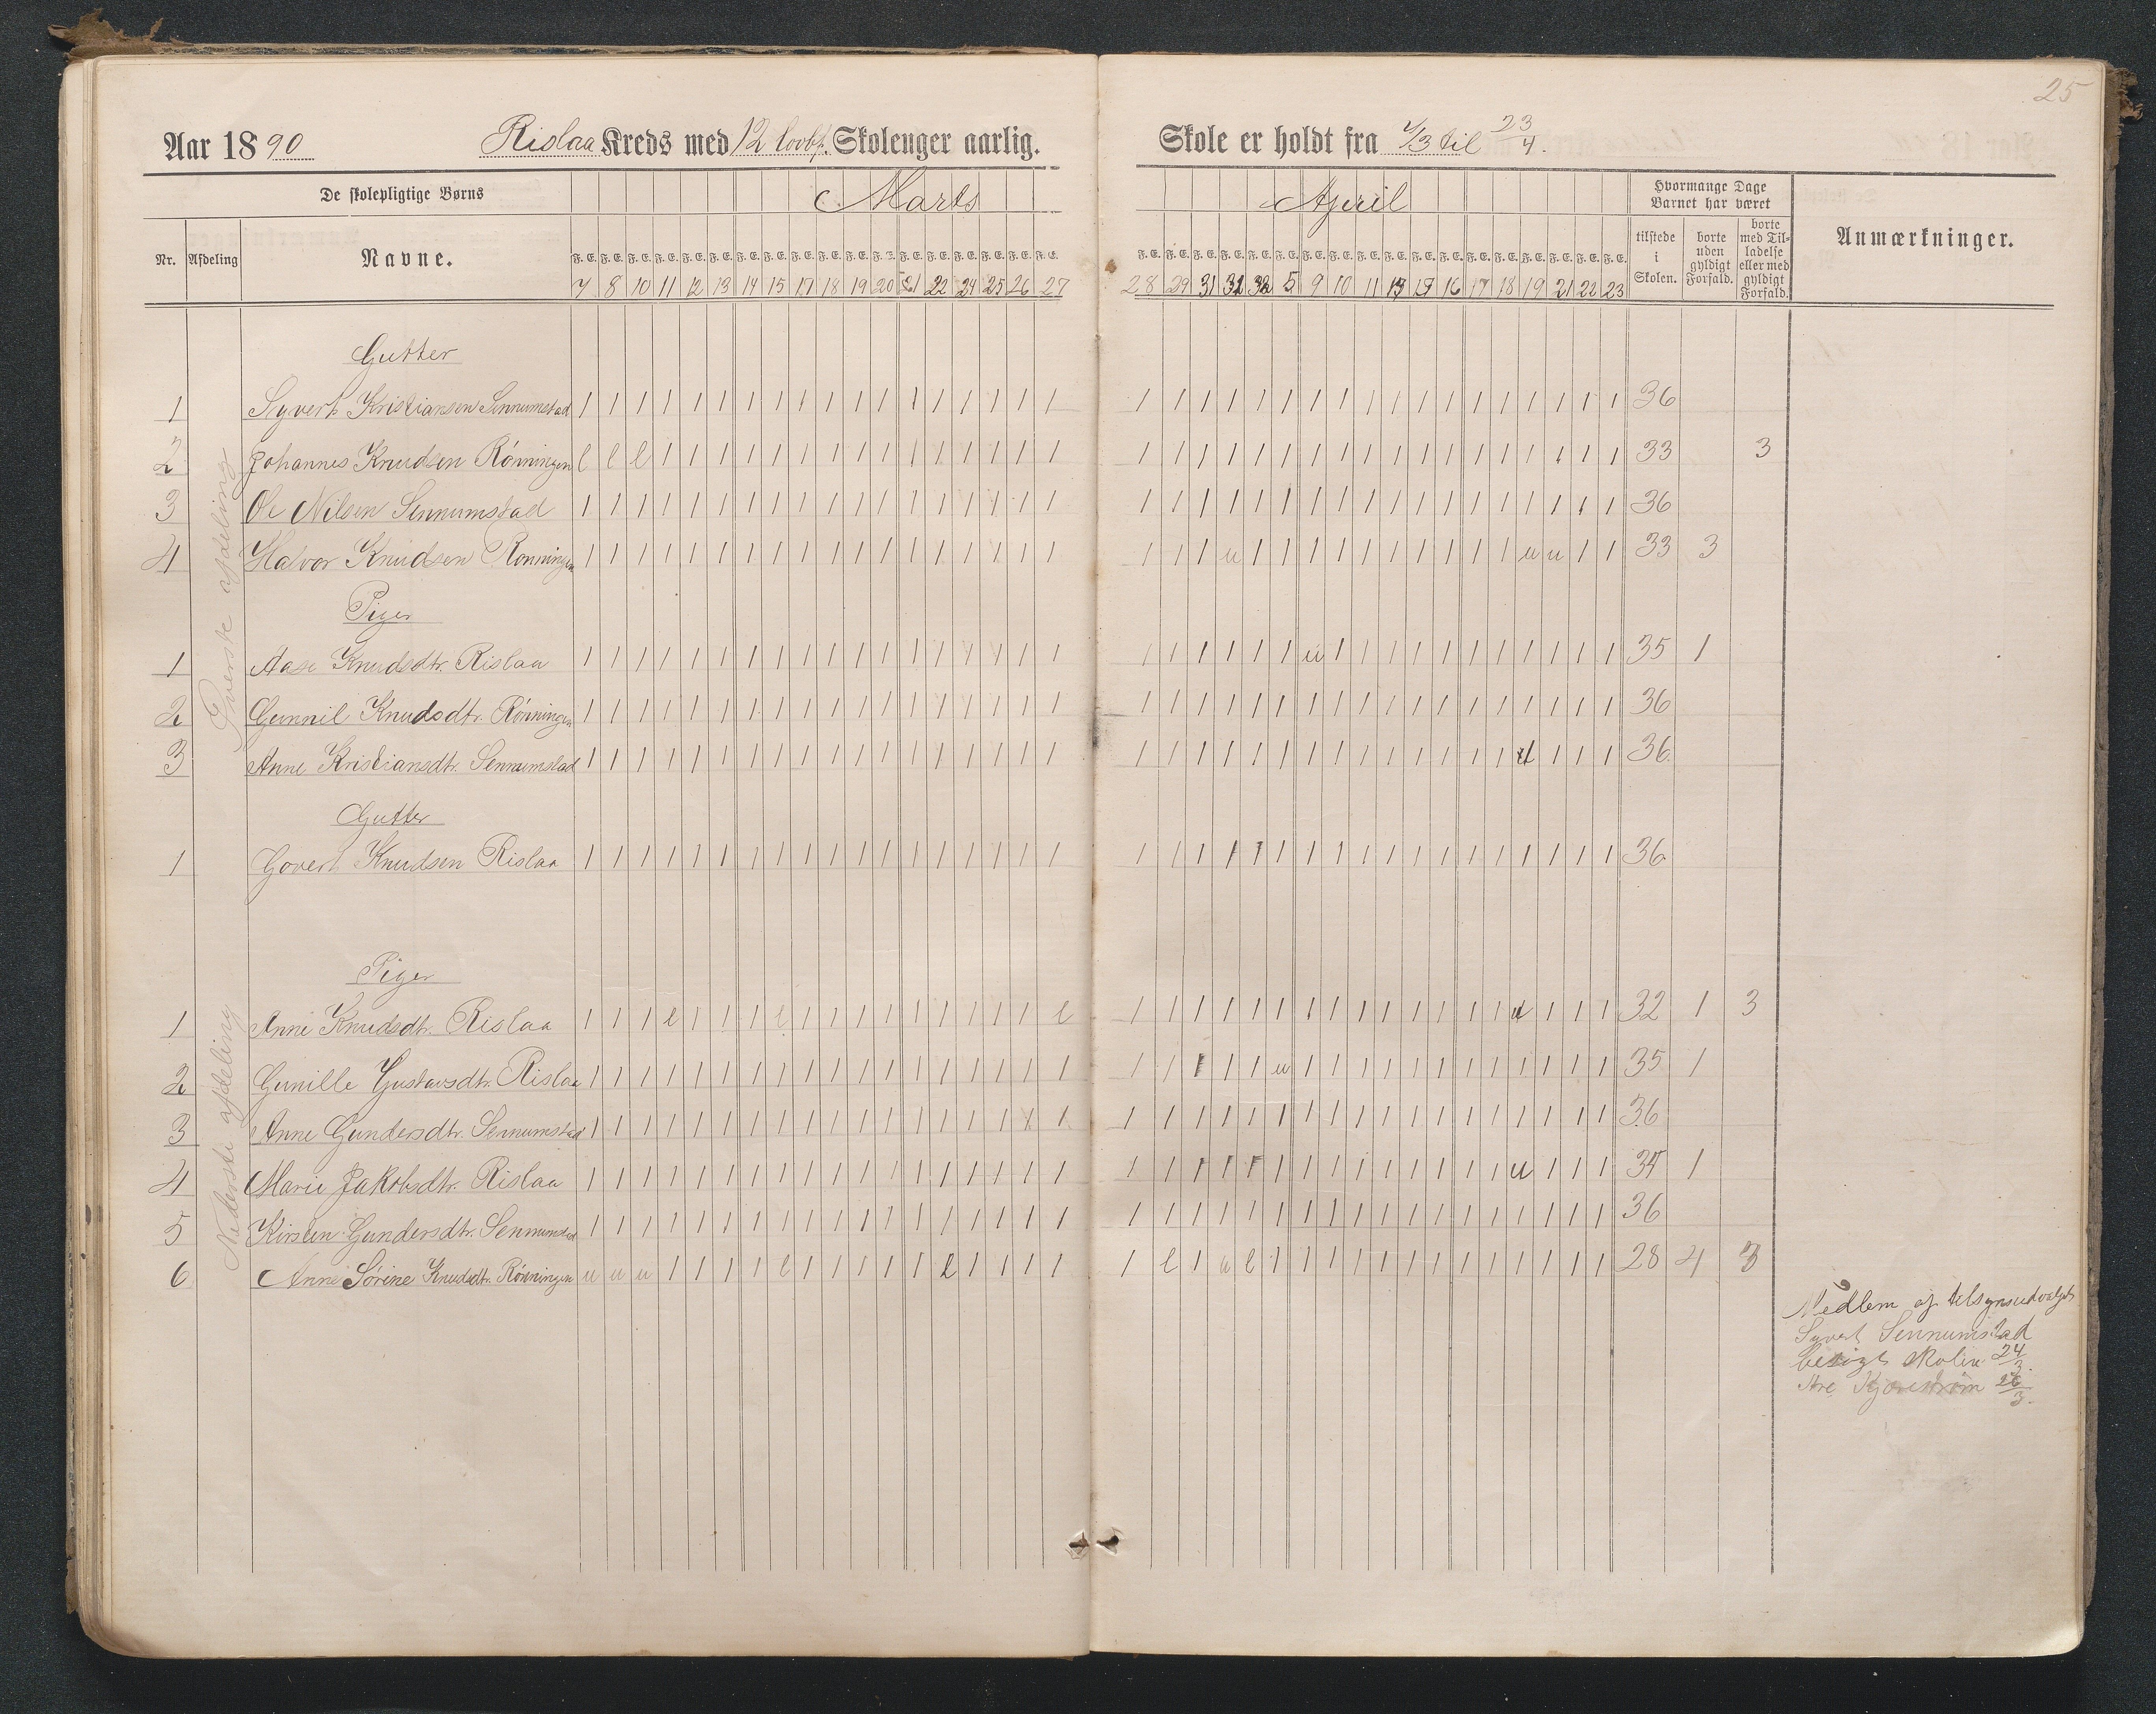 25
Aar 1890 Rislaa Kreds med 12 lovbf. Skolenger aarlig. Skole er holdt fra 7/3 til 23/4.
De skolepligtige Børns Marts April Hvormange Dage Barnet har været
Nr. Afdeling Navne. F. E. F. E. F. E. F. E. F. E. F. E. F. E. F. E. F. E. F. E. F. E. F. E. F. E. F. E. F. E. F. E. F. E. F. E. F. E. F. E. F. E. F. E. F. E. F. E. F. E. F. E. F. E. F. E. F. E. F. E. F. E. F. E. F. E. F. E. F. E. F. E. tilstede i Skolen. borte uden gyldigt Forfald. borte med Tilladelse eller med gyldigt Forfald. Anmærkninger.
7 8 10 11 12 13 14 15 17 18 19 20 21 22 24 25 26 27 28 29 31 5 9 10 11 16 17 18 19 21 22 23
Øverste afdeling
Gutter
1 Syvert Kristiansen Sennumstad 1 1 1 1 1 1 1 1 1 1 1 1 1 1 1 1 1 1 1 1 1 1 1 1 1 1 1 1 1 1 1 1 1 1 1 1 36
2 Johannes Knudsen Rönningen l l l 1 1 1 1 1 1 1 1 1 1 1 1 1 1 1 1 1 1 1 1 1 1 1 1 1 1 1 1 1 1 1 1 1 33 3
3 Ole Nilsen Sennumstad 1 1 1 1 1 1 1 1 1 1 1 1 1 1 1 1 1 1 1 1 1 1 1 1 1 1 1 1 1 1 1 1 1 1 1 1 36
4 Halvor Knudsen Rönningen 1 1 1 1 1 1 1 1 1 1 1 1 1 1 1 1 1 1 1 1 1 u 1 1 1 1 1 1 1 1 1 1 u u 1 1 33 3
Piger
1 Aase Knudsdtr. Rislaa 1 1 1 1 1 1 1 1 1 1 1 1 1 1 1 1 1 1 1 1 1 1 1 1 u 1 1 1 1 1 1 1 1 1 1 1 35 1
2 Gunnil Knudsdtr. Rönningen 1 1 1 1 1 1 1 1 1 1 1 1 1 1 1 1 1 1 1 1 1 1 1 1 1 1 1 1 1 1 1 1 1 1 1 1 36
3 Anne Kristiansdtr. Sennumstad 1 1 1 1 1 1 1 1 1 1 1 1 1 1 1 1 1 1 1 1 1 1 1 1 1 1 1 1 1 1 1 1 1 1 1 36.
Nederste afdeling
Gutter
1 Govert Knudsen Rislaa 1 1 1 1 1 1 1 1 1 1 1 1 1 1 1 1 1 1 1 1 1 1 1 1 1 1 1 1 1 1 1 1 1 1 1 1 36
Piger
1 Anne Knudsdtr. Rislaa 1 1 1 l 1 1 1 l 1 1 1 1 1 1 1 1 1 l 1 1 1 1 1 1 1 1 1 1 1 1 1 1 u 1 1 1 32 1 3
2 Gunille Gustavsdtr. Rislaa 1 1 1 1 1 1 1 1 1 1 1 1 1 1 1 1 1 1 1 1 1 1 1 u 1 1 1 1 1 1 1 1 1 1 1 1 35 1
3 Anne Gundersdtr. Sennumstad 1 1 1 1 1 1 1 1 1 1 1 1 1 1 1 1 1 1 1 1 1 1 1 1 1 1 1 1 1 1 1 1 1 1 1 1 36
4 Marie Jakobsdtr. Rislaa 1 1 1 1 1 1 1 1 1 1 1 1 1 1 1 1 1 1 1 1 1 1 1 1 1 1 1 1 1 1 1 1 u 1 1 1 35 1
5 Kirsten Gundersdtr. Sennumstad 1 1 1 1 1 1 1 1 1 1 1 1 1 1 1 1 1 1 1 1 1 1 1 1 1 1 1 1 1 1 1 1 1 1 1 1 36
6 Anne Sörine Knudsdtr. Rönningen u u u 1 1 1 1 l 1 1 1 1 1 l 1 1 1 1 1 l 1 u l 1 1 1 1 1 1 1 1 1 1 1 1 1 28 4 3
Medlem af tilsynsudvalget
Syvert Sennumstad
besøgt skolen 24/3.
Are 26/3.